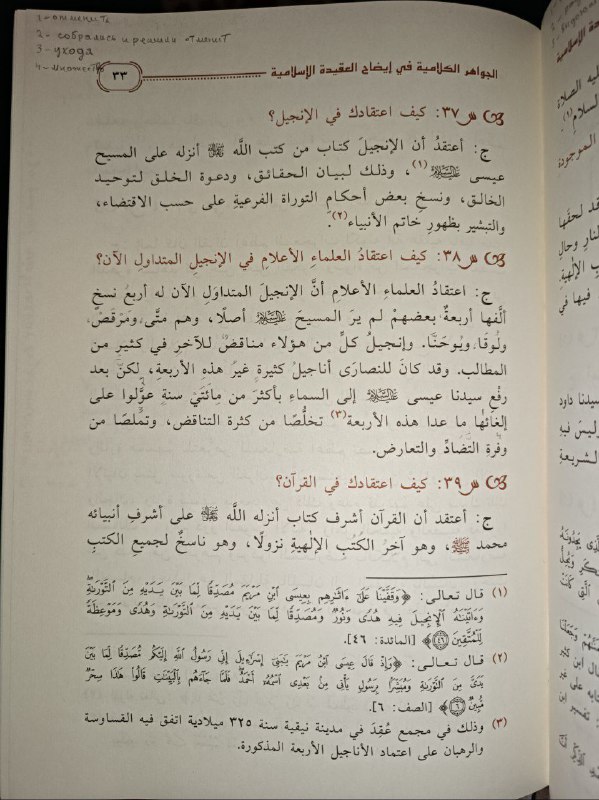 1 - отменить
2 - собрались и решили отменит
3 - ухода
4 - множеств
٣٣
الجواهر الكلامية في إيضاح العقيدة الإسلامية
س٣٧: كيف اعتقادك في الإنجيل؟
ج: أعتقدُ أن الإنجيلَ كتاب من كتب الله ﷻ أنزله على المسيح
عيسى عليه السلام(١)، وذلك لبيان الحقائق، ودعوة الخلق لتوحيد
الخالق، ونسخِ بعض أحكامِ التوراة الفرعيةِ على حسب الاقتضاء،
والتبشير بظهورِ خاتم الأنبياء(٢).
س٣٨: كيف اعتقادُ العلماءِ الأعلامِ في الإنجيل المتداول الآن؟
ج: اعتقادُ العلماءِ الأعلامِ أنَّ الإنجيلَ المتداوَلَ الآن له أربعُ نسخٍ
ألَّفها أربعةٌ بعضهمْ لم يرَ المسيحَ عليه السلام أصلًا، وهم متَّى، ومَرْقصُ،
ولُوقَا، ويُوحَنَّا. وإنجيلُ كلٍّ من هؤلاء مناقضٌ للآخرِ في كثيرٍ من
المطالب. وقد كانَ للنصارَى أناجيلُ كثيرةٍ غيرُ هذه الأربعةِ، لكنْ بعد
رفْعِ سيدنا عيسى عليه السلام إلى السماءِ بأكثرَ من مِائَتَيْ سنةٍ عوَّلوا على
إلغائها ما عدا هذه الأربعةَ(٣) تخلُّصًا من كثرة التناقض، وتملُّصًا من
وفرةِ التضادِّ والتعارض.
س٣٩: كيف اعتقادك في القرآن؟
ج: أعتقد أن القرآن أشرف كتاب أنزله الله ﷻ على أشرفِ أنبيائه
محمد ﷺ، وهو آخِرُ الكُتُبِ الإلٰهيةِ نزولًا، وهو ناسخٌ لجميع الكتبِ
(١) قال تعالى: ﴿وَقَفَّيْنَا عَلَىٰٓ ءَاثَٰرِهِم بِعِيسَى ٱبْنِ مَرْيَمَ مُصَدِّقًا لِّمَا بَيْنَ يَدَيْهِ مِنَ ٱلتَّوْرَىٰةِ
وَءَاتَيْنَٰهُ ٱلْإِنجِيلَ فِيهِ هُدًى وَنُورٌ وَمُصَدِّقًا لِّمَا بَيْنَ يَدَيْهِ مِنَ ٱلتَّوْرَىٰةِ وَهُدًى وَمَوْعِظَةً
لِّلْمُتَّقِينَ ٤٦﴾ [المائدة: ٤٦].
(٢) قال تعالى: ﴿وَإِذْ قَالَ عِيسَى ٱبْنُ مَرْيَمَ يَٰبَنِىٓ إِسْرَٰٓءِيلَ إِنِّى رَسُولُ ٱللَّهِ إِلَيْكُم مُّصَدِّقًا لِّمَا بَيْنَ
يَدَىَّ مِنَ ٱلتَّوْرَىٰةِ وَمُبَشِّرًۢا بِرَسُولٍ يَأْتِى مِنۢ بَعْدِى ٱسْمُهُۥٓ أَحْمَدُ فَلَمَّا جَآءَهُم بِٱلْبَيِّنَٰتِ قَالُوا۟ هَٰذَا سِحْرٌ
مُّبِينٌ ٦﴾ [الصف: ٦].
(٣) وذلك في مجمع عُقِدَ في مدينة نيقية سنة ٣٢٥ ميلادية اتفق فيه القساوسة
والرهبان على اعتماد الأناجيل الأربعة المذكورة.